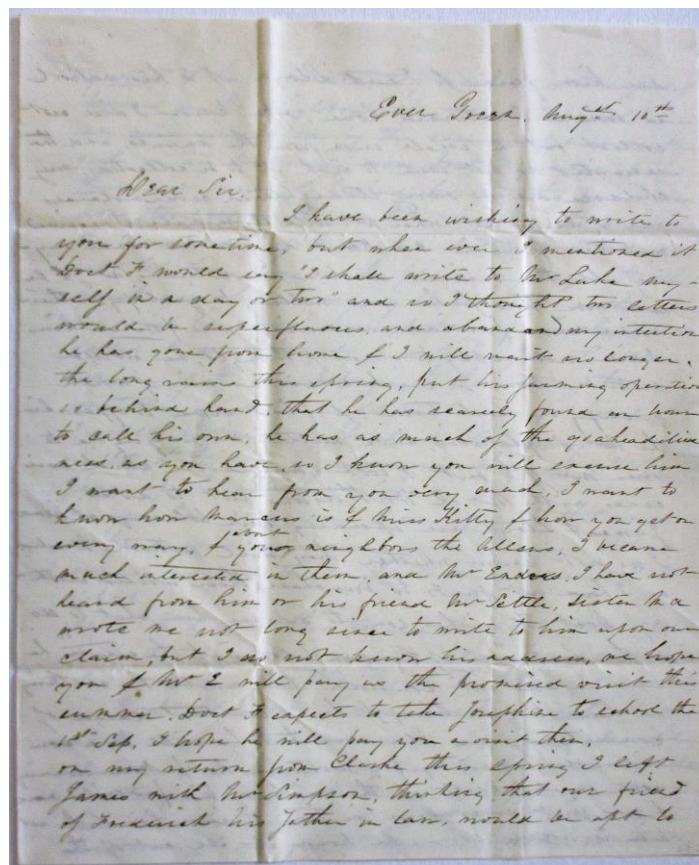 Ever Green. Augst 10th
Dear Sir.
I have been wishing to write to
you for some time, but when ever I mentioned it
Doct F would say "I shall write to Mr Luke my
self in a day or two" and so I thought two letters
would be superfluous, and my intention
he has gone from home & I will wait no longer.
the long rains this spring, put his farming operation
so behind hand, that he has scarcely found an hour
to call his own, he has as much of the goaheaditive
ness as you have, so I know you will excuse him
I want to hear from you very much, I want to
know how Marcus is & Miss Kitty & how you get on
every way, & about your neighbors the Allens, I became
much interested in them, and Mr Enders, I have not
heard from him or his friend Mr Settle, Sister
wrote me not long since to write to him upon our
claim, but I do not know his address, we hope
you & Mr E will pay us the promised visit this
summer. Doct F expects to take Josephine to school the
1st Sep. I hope he will pay you a visit then.
on my return from Clarke this spring I left
James with Mr Simpson, thinking that our friend
of Frederick his father in law, would be apt to